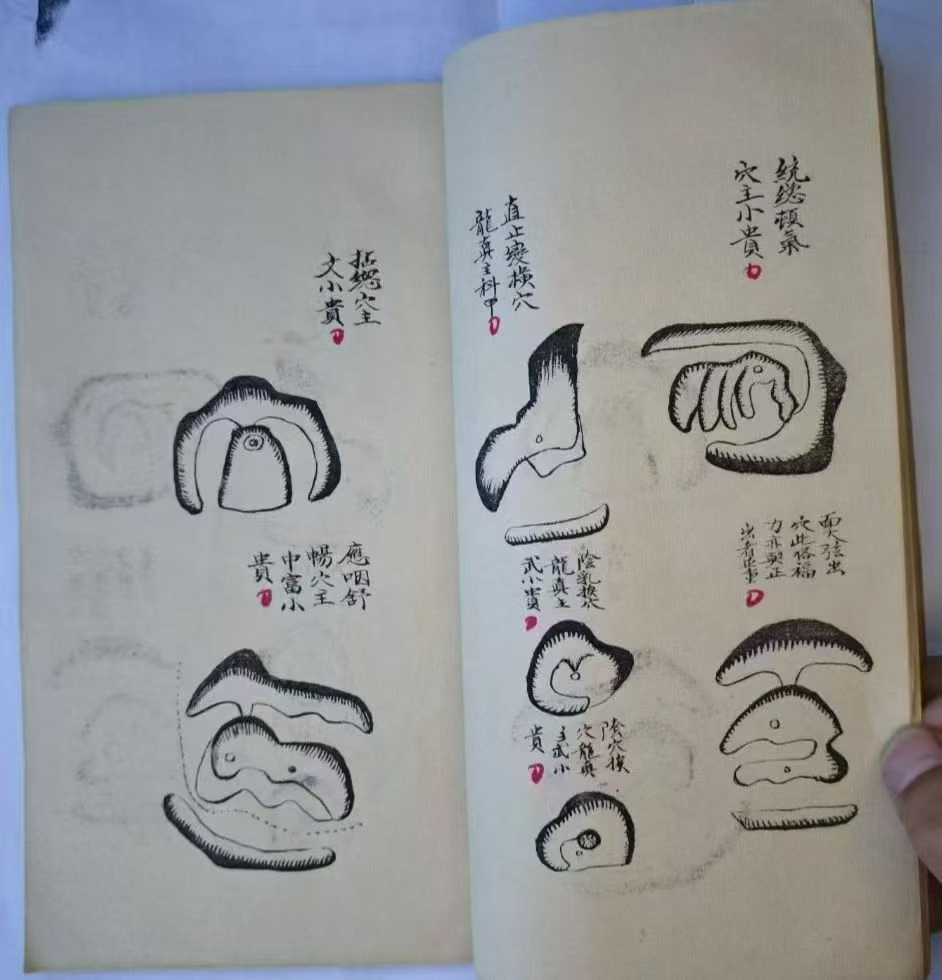 統總頓氣
穴主小貴
面大弦出
穴此格福
力亦與正
出者並重
直止變橫穴
龍真主科甲
陰乳挨穴
龍真主
武小貴
陰穴挨
穴龍真
主武小
貴
拈總穴主
文小貴
應咽舒
暢穴主
中富小
貴